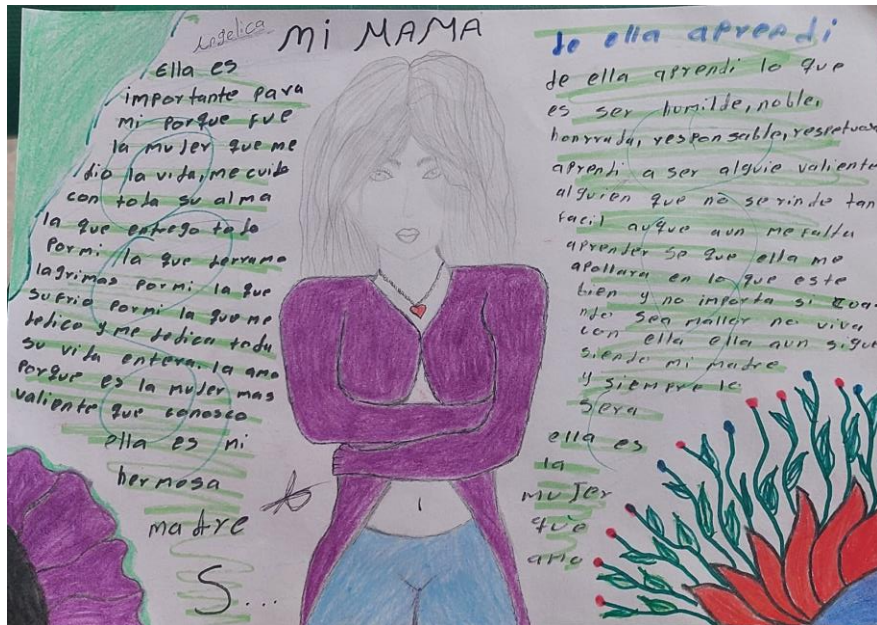 Angelica
Mi MAMA
Ella es
importante para
mi porque fue
la mujer que me
dio la vida, me cuido
con toda su alma
la que entrego todo
por mi la que derramo
lagrimas por mi la que
sufrio por mi la que me
dedico y me dedica toda
su vida entera. la amo
porque es la mujer mas
valiente que conosco
ella es mi
hermosa
madre
S...
de ella aprendi
de ella aprendi lo que
es ser humilde, noble,
honrrada, responsable, respetuosa
aprendi a ser alguie valiente
alguien que no se rinde tan
facil auque aun me falta
aprender se que ella me
apollara en lo que este
bien y no importa si cua-
ndo sea mallor no viva
con ella ella aun sigue
siendo mi madre
y siempre lo
sera
ella es
la
mujer
que
amo